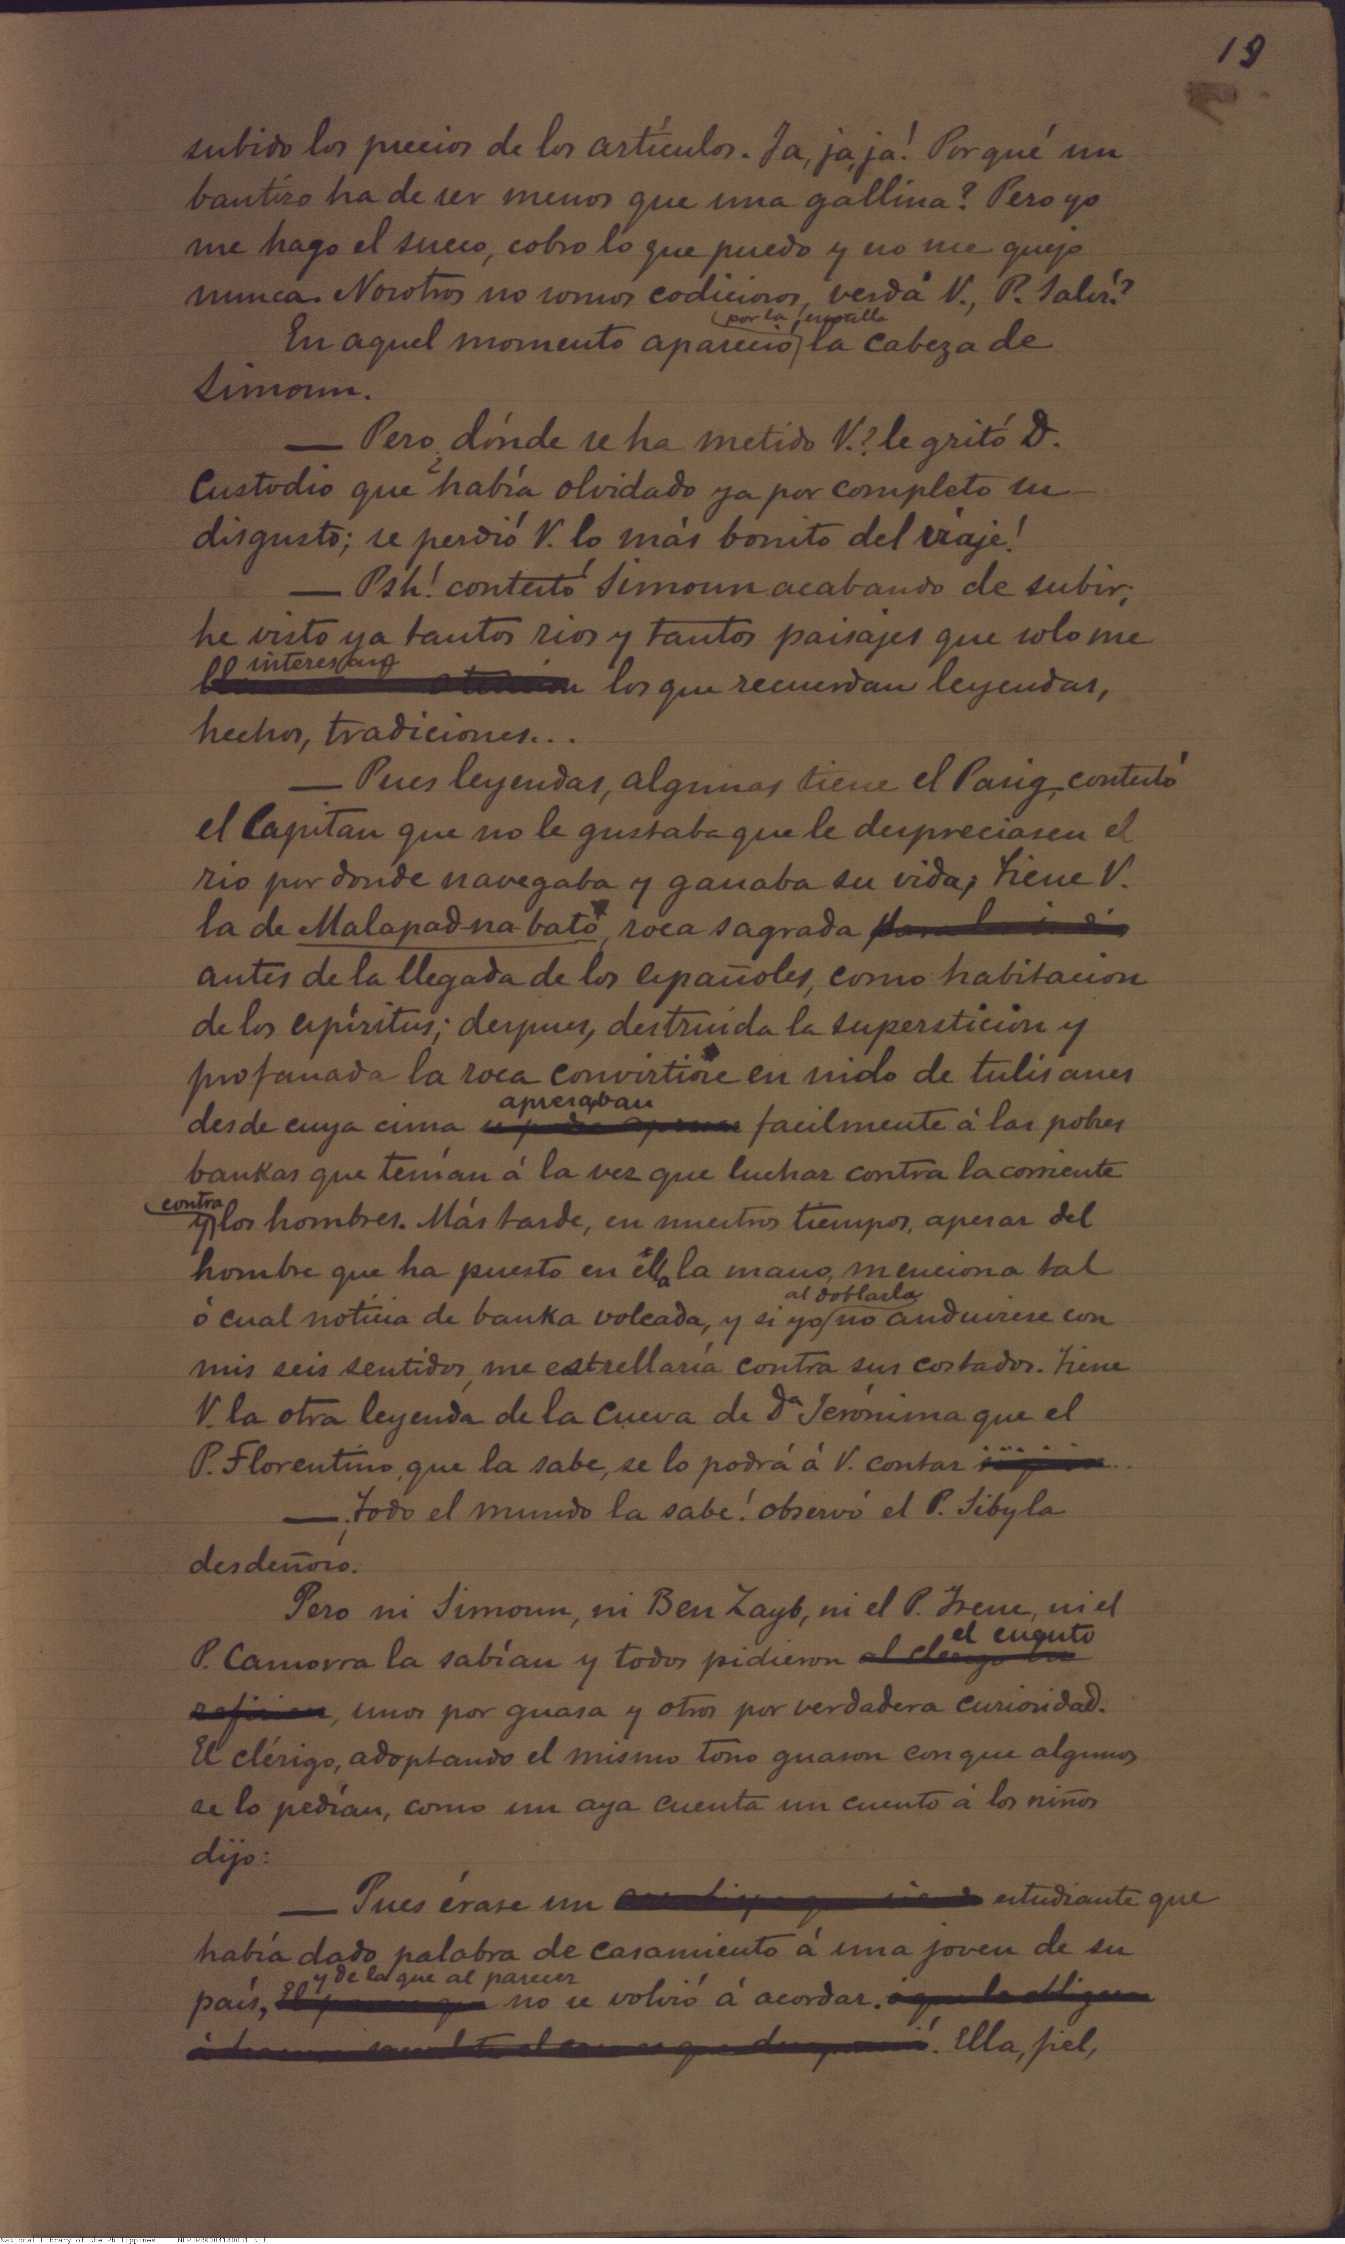 19
subido los precios de los artículos. Ja, ja, já! Porqué un
bautizo ha de ser menos que una gallina? Pero yo
me hago el sueco, cobro lo que puedo y no me quejo
nunca. Nosotros no somos codiciosos, verdá V., P. Salví?
por la escotilla
En aquel momento apareció la cabeza de
Simoun.
— Pero ¿dónde se ha metido V.? le gritó D.
Custodio que había olvidado ya por completo su
disgusto; se perdió V. lo más bonito del viaje!
— Psh! contestó Simoun acabando de subir;
he visto ya tantos rios y tantos paisajes que solo me
interesan
atención los que recuerdan leyendas,
hechos, tradiciones...
— Pues leyendas, algunas tiene el Pasig, contestó
el Capitan que no le gustaba que le despreciasen el
rio por donde navegaba y ganaba su vida; tiene V.
la de Malapad-na-bató, roca sagrada para los indios
antes de la llegada de los españoles, como habitacion
de los espíritus; despues, destruida la supersticion y
profanada la roca convirtióse en nido de tulisanes
apresaban
desde cuya cima se podia apresar facilmente á las pobres
bankas que tenían á la vez que luchar contra la corriente
contra
y los hombres. Más tarde, en nuestros tiempos, apesar del
hombre que ha puesto en ella la mano, menciona tal
al doblarla
ó cual noticia de banka volcada, y si yo no anduviese con
mis seis sentidos, me estrellaría contra sus costados. Tiene
V. la otra leyenda de la Cueva de Dª Jerónima que el
P. Florentino, que la sabe, se lo podrá á V. contar
— ¡Todo el mundo la sabe! observó el P. Sibyla
desdeñoso.
Pero ni Simoun, ni Ben Zayb, ni el P. Irene, ni el
el cuento
P. Camorra la sabían y todos pidieron al clerigo la
refiriera, unos por guasa y otros por verdadera curiosidad.
El clérigo, adoptando el mismo tono guason con que algunos
se lo pedían, como un aya cuenta un cuento á los niños
dijo:
— Pues érase un estudiante que
había dado palabra de casamiento á una joven de su
y de la que al parecer
país, no se volvió á acordar.
Ella, fiel,